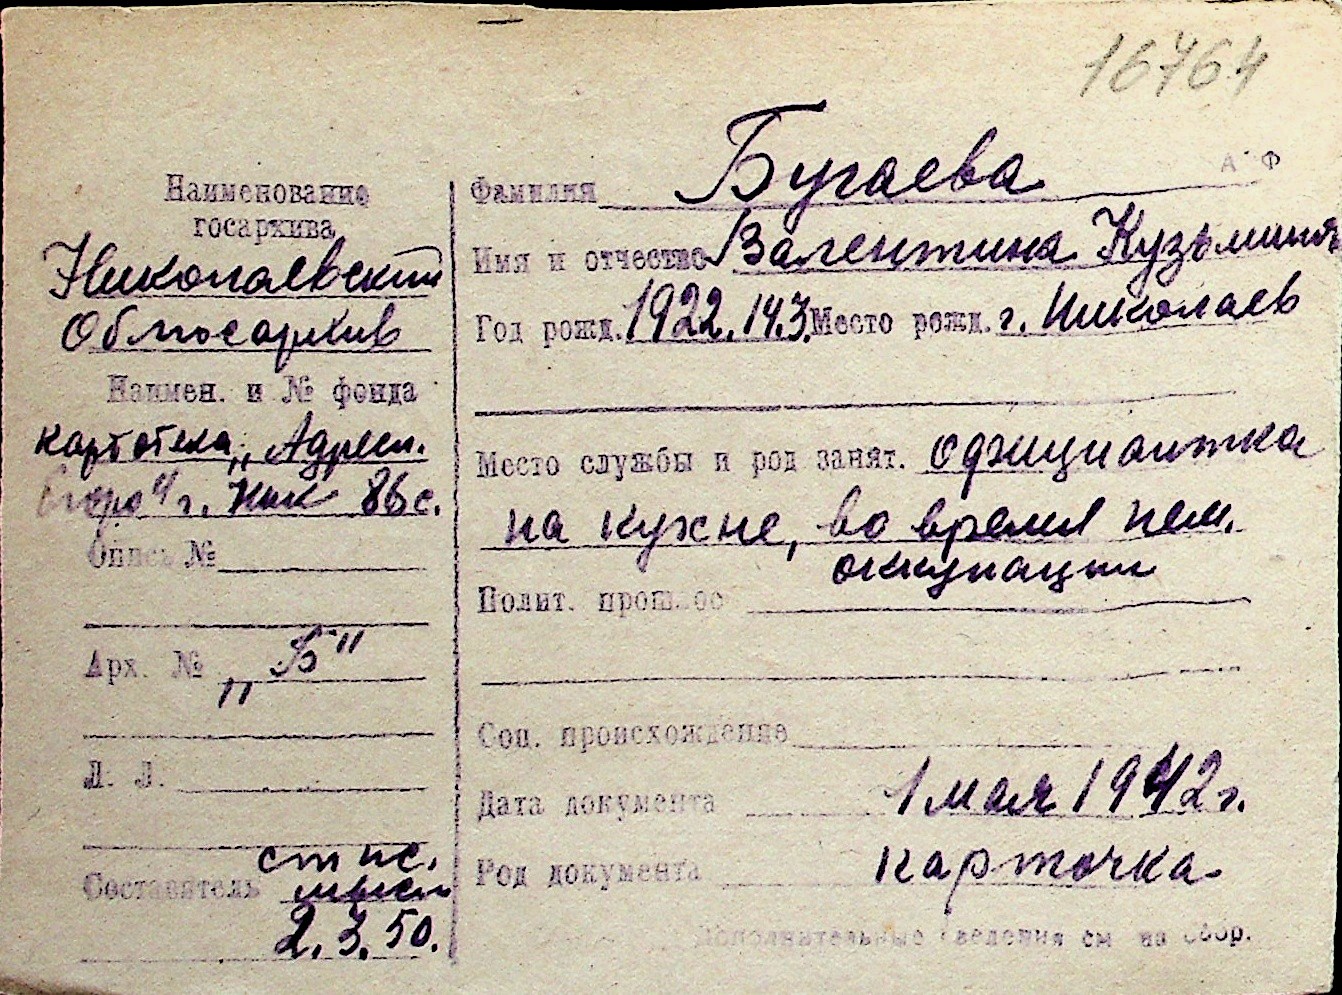 16764
А Ф
Наименование
госархива
Николаевский
Облгосархив
Наимен. и № фонда
картотека „Адресн.
бюро" г. Ник 86с.
Опись №
Арх. № „Б"
Л. Л.
Составитель ст нс.
2.3.50.
Фамилия Бугаева
Имя и отчество Валентина Кузьминя
Год рожд. 1922.14.3. Место рожд. г. Николаев
Место службы и род занят. официантка
на кухне, во время нем.
оккупации
Полит. прошлое
Соц. происхождение
Дата документа 1 мая 1942 г.
Род документа карточка
Дополнительные сведения см на обор.